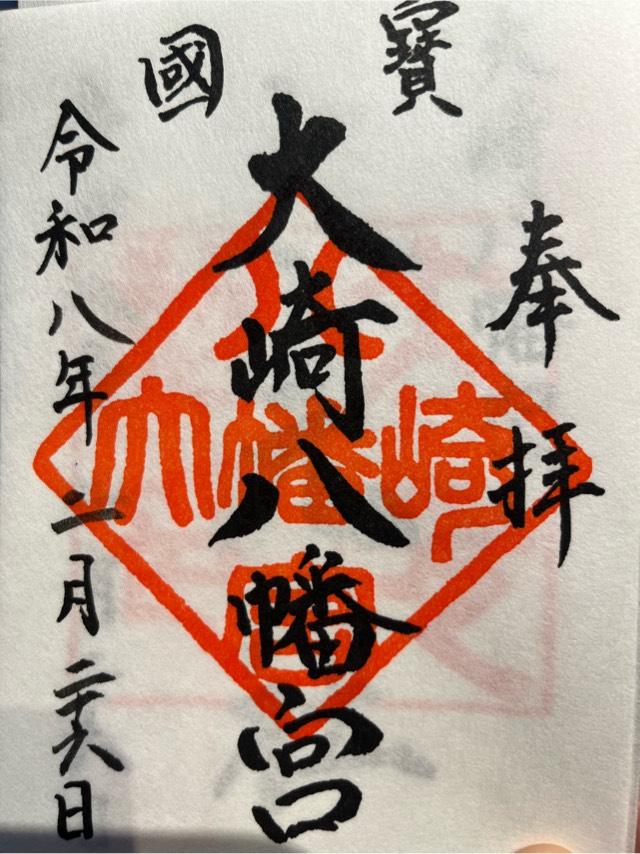 寶國
奉拝
大崎八幡宮
令和八年二月二十八日
大崎八幡宮